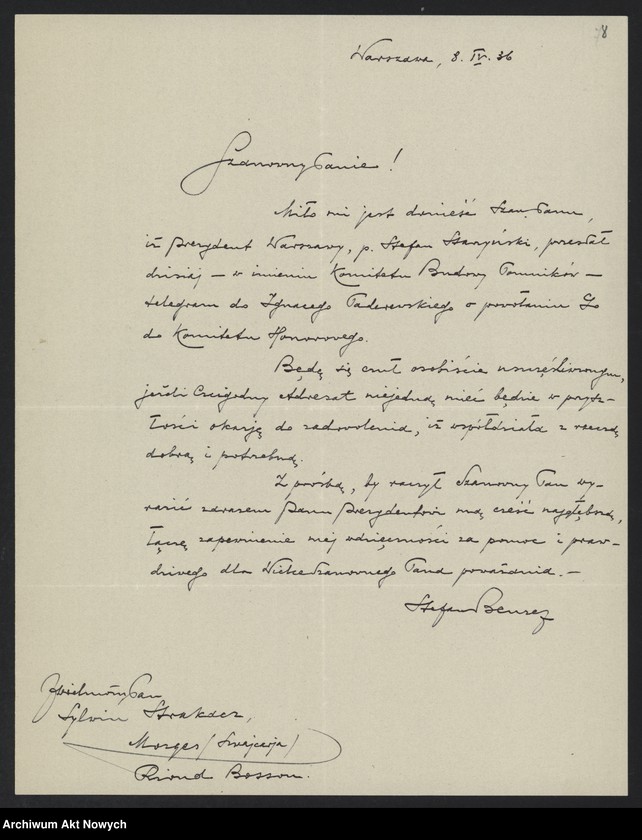 8
Warszawa, 8. IV. 36
Szanowny Panie!
Miło mi jest donieść Szan. Panu,
iż prezydent Warszawy, p. Stefan Starzyński, przesłał
dzisiaj — w imieniu Komitetu Budowy Pomników —
telegram do Ignacego Paderewskiego o powołaniu Go
do Komitetu Honorowego.
Będę się czuł osobiście uszczęśliwionym,
jeżeli Czcigodny Adresat niejedną mieć będzie w przysz-
łości okazję do zadowolenia, iż współdziała z rzeczą
dobrą i potrzebną.
Z prośbą, by raczył Szanowny Pan wy-
razić zarazem Panu Prezydentowi mą cześć najgłębszą,
łączę zapewnienie mej wdzięczności za pomoc i praw-
dziwego dla Wielce Szanownego Pana poważania. —
Stefan
JWielmożny Pan
Sylwin Strakacz,
Morges (Szwajcarja)
Riond Bosson.
Archiwum Akt Nowych